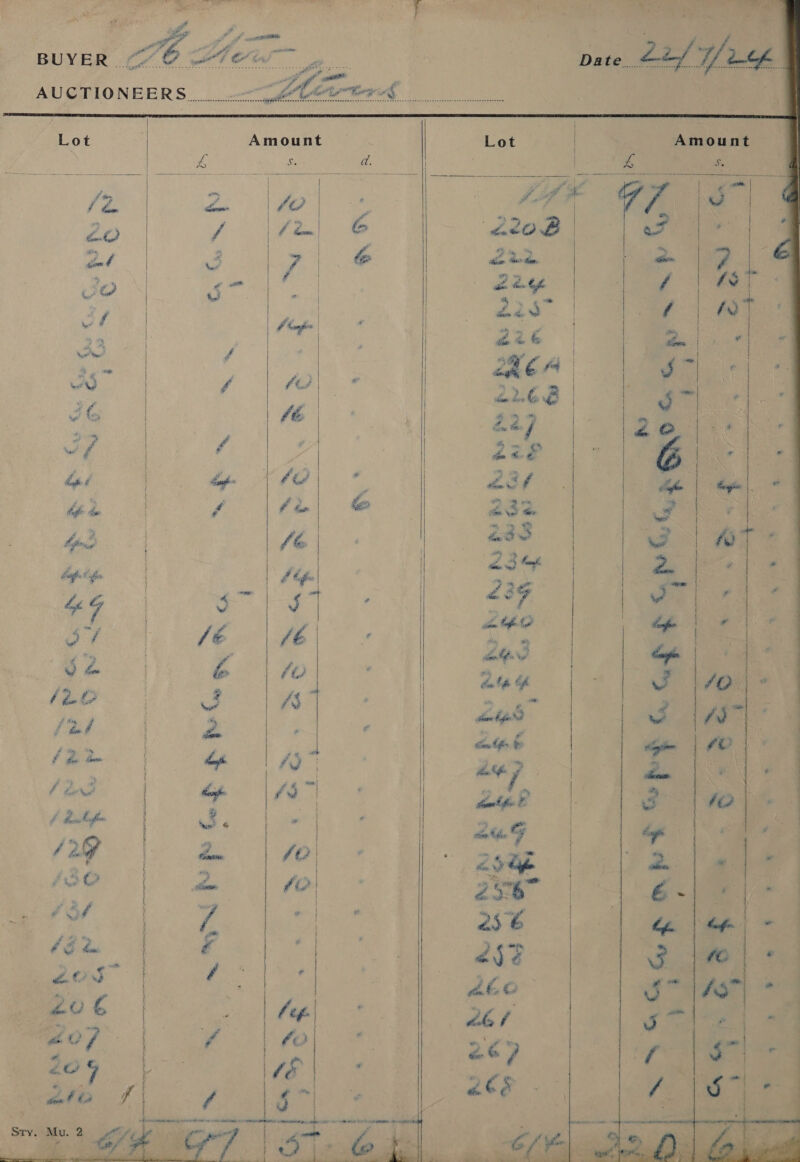 BUYER
Date 22/7/24
AUCTIONEERS Stevens
Lot Amount Lot Amount
£ s. d. £ s. d.
12 2 10 -
20 1 12 6
21 3 7 6
30 5 -
31 14 -
33 1 - -
35 1 10 -
36 16 -
37 1 -
41 4 10 -
42 1 12 6
43 16 -
44 14
49 5 5 -
51 16 16 -
52 6 10
120 3 15
121 2 - -
122 4 15
123 4 15
124 3. - -
129 2 10
130 2 10
131 7 - -
132 8 -
205 1 -
206 14 -
207 1 10
209 18 -
210 1 5 -
Sty. Mu. 2 C/f 97 5 6
97 5 6
220B 3 - -
222 2 7 6
224 1 15
225 1 15 -
226 2 - -
226A 5 - -
226B 5 - -
227 20 - -
228 6 - -
231 4 4 -
232 3 - -
233 3 15 -
234 2 - -
239 5 - -
240 4 -
243 4
244 3 10 -
245 3 15 -
246 4 10 -
247 2 - -
248 3 10 -
249 4 -
254 2 - -
255 6 - -
256 4 4 -
257 3 10 -
260 5 15 -
261 5 - -
267 1 5 -
268 1 5 -
C/f 220 6